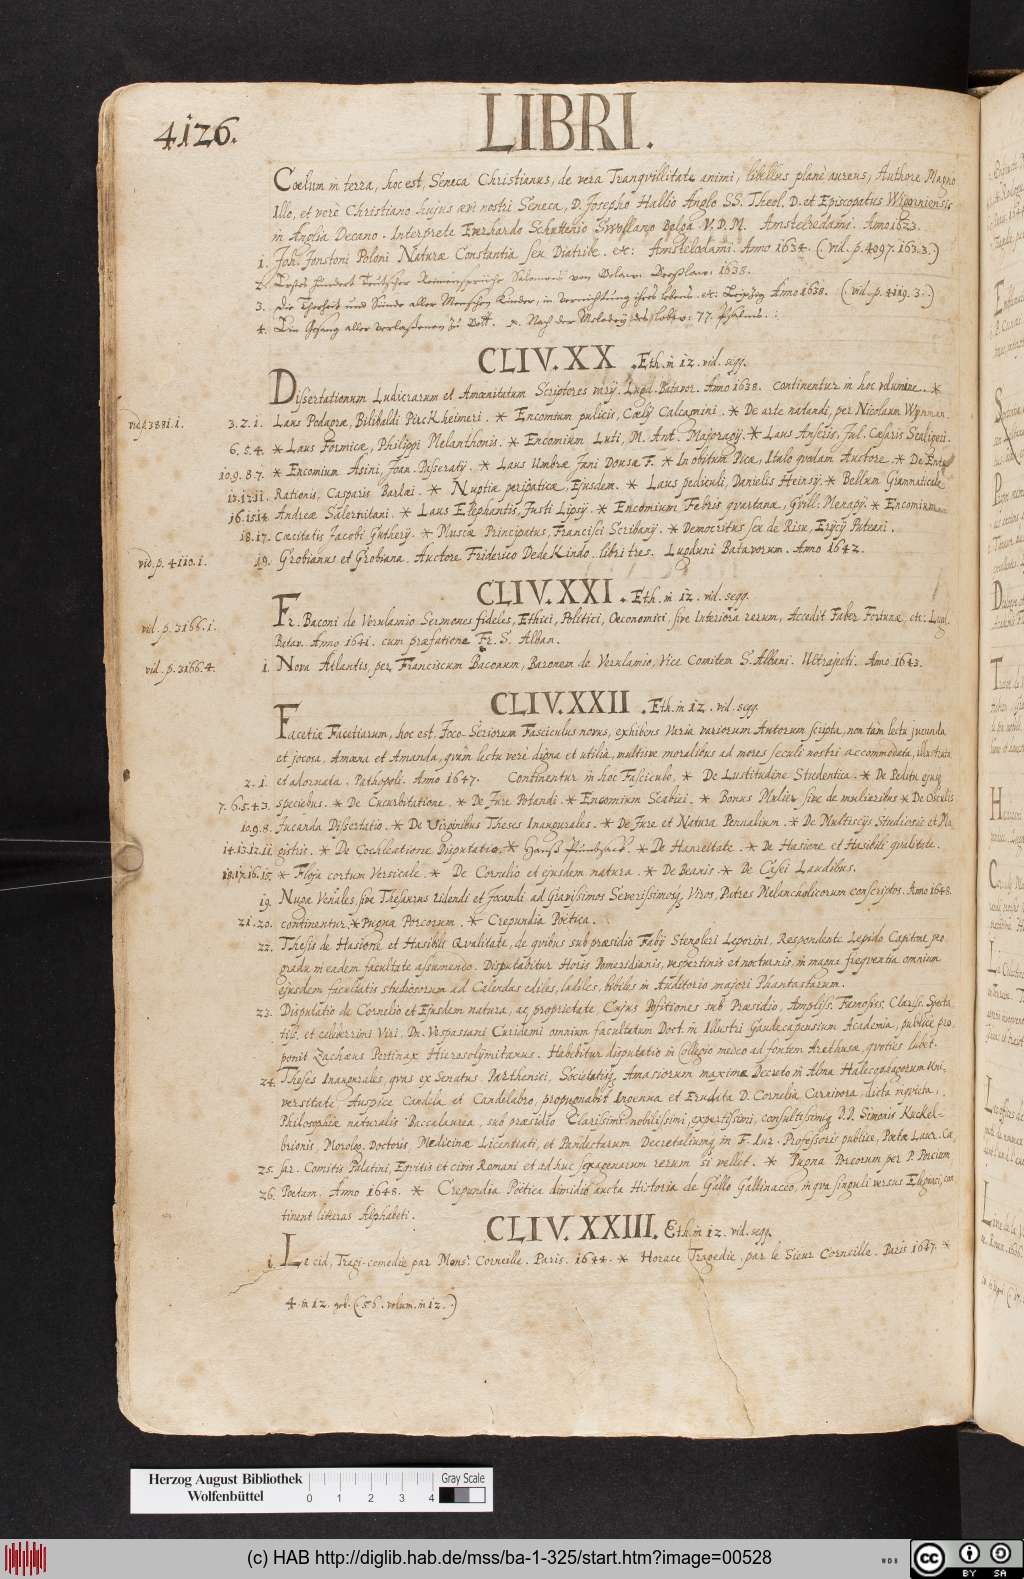 4126.
LIBRI.
Cœlum in terra, hoc est, Seneca Christianus, de vera Tranqvillitate animi, libellus planè aureus, Authore Magno
Illo, et verè Christiano hujus ævi nostri Seneca, D. Josepho Hallio Anglo SS. Theol. D. et Episcopatus Wigorniensis
in Anglia Decano. Interprete Everhardo Schuttenio Swollano Belga V. D. M. Amstelredami. Anno 1623.
1. Joh. Jonstoni Poloni Naturæ Constantia seu Diatribe. etc: Amstelodami. Anno 1634. (vid. p. 4097. 163.3.)
2. Erstes hundert Teutscher Reimensprüche Salomons von Breßlaw: 1635.
3. Die Thorheit und Sünde aller Menschen Kinder, in Vernichtung ihres lebens. etc: Leipzig Anno 1638. (vid. p. 4119. 3.)
4. Ein Gesang aller Verlaßenen zu Gott. Nach der Melodey des Lobw: 77. Psalms.
CLIV. XX. Eth. in 12. vid. seqq.
Dissertationum Ludicrarum et Amœnitatum Scriptores varij. Lugd. Batavor. Anno 1638. Continentur in hoc volumine. *
vid. p. 3881. 1.
3. 2. 1. Laus Podagræ, Bilibaldi Pirckheimeri. * Encomium pulicis, Cælij Calcagnini. * De arte natandi, per Nicolaum Wynman.
6. 5. 4. * Laus Formicæ, Philippi Melanthonis. * Encomium Luti, M. Ant. Majoragij. * Laus Anseris, Jul. Cæsaris Scaligeri.
10. 9. 8. 7. * Encomium Asini, Joan. Passeratij. * Laus Umbræ Jani Dousæ F. * In obitum Picæ, Italo quodam Auctore. * De Ente
13. 12. 11. Rationis, Casparis Barlæi. * Nuptiæ peripateticæ, Ejusdem. * Laus pediculi, Danielis Heinsij. * Bellum Grammaticale
16. 15. 14. Andreæ Salernitani. * Laus Elephantis, Justi Lipsij. * Encomium Febris quartanæ, Gvill: Menapij. * Encomium
18. 17. Cæcitatis Jacobi Gutherij. * Muscæ Principatus, Francisci Scribanij. * Democritus seu de Risu, Erycij Puteani.
vid. p. 4110. 1.
19. Grobianus et Grobiana. Auctore Friderico Dedekindo. libri tres. Lugduni Batavorum. Anno 1642.
CLIV. XXI. Eth. in 12. vid. seqq.
Fr. Baconi de Verulamio Sermones fideles, Ethici, Politici, Œconomici sive Interiora rerum, Accedit Faber Fortunæ, etc: Lugd.
vid. p. 3166. 1.
Batav. Anno 1641. cum præfatione Fr. S. Alban.
vid. p. 3166. 4.
1. Nova Atlantis, per Franciscum Baconum, Baronem de Verulamio, Vice Comitem S. Albani. Ultrajecti. Anno 1643.
CLIV. XXII. Eth. in 12. vid. seqq.
Facetiæ Facetiarum, hoc est, Joco-Seriorum Fasciculus novus, exhibens Varia variorum Autorum scripta, non tam lectu jucunda
et jocosa, Amœna et Amanda, quàm lectu verè digna et utilia, multisve moralibus ad mores seculi nostri accommodata, illustrata
2. 1. et adornata. Pathopoli. Anno 1647. Continentur in hoc Fasciculo, * De Lustitudine Studentica. * De Peditu ejusq
7. 6. 5. 4. 3. speciebus. * De Cucurbitatione. * De Jure Potandi. * Encomium Scabiei. * Bonus Mulier sive de mulieribus * De Osculis
10. 9. 8. Jucanda Dissertatio. * De Virginibus Theses Inaugurales. * De Jure et Natura Pennalium. * De Multiscijs Studiosis et Ma,
14. 13. 12. 11. gistris. * De Cochleatione Disputatio. * Hanß Pumbsack. * De Hanreitate. * De Hasione et Hasibili qvalitate.
18. 17. 16. 15. * Floja cortum Versicale. * De Cornelio et ejusdem natura. * De Beanis. * De Casei Laudibus.
19. Nugæ Venales sive Thesaurus ridendi et Jocandi ad Gravissimos Severissimosq, Viros, Patres Melancholicorum conscriptos. Anno 1648.
21. 20. continentur, * Pugna Porcorum. * Crepundia Poetica.
22. Thesis de Hasione et Hasibili Qvalitate, de qvibus sub præsidio Fabij Stengleri Leporini, Respondente Lepido Capitone pro
gradu in eadem facultate assumendo. Disputabitur Horis Pomeridianis, vespertinis et nocturnis, in magna freqventia omnium
ejusdem facultatis studiosorum ad Calendas ediles, ludiles, bibiles in Auditorio majori Phantastarum.
23. Disputatio de Cornelio et Ejusdem natura, ac proprietate, Cujus Positiones sub Præsidio, Ampliss. Famosiss. Clariss. Specta
tiss. et celeberrimi Viri, Dn. Vespasiani Curidemi omnium facultatum Doct. in Illustri Gaudecapensium Academia, publice pro
ponit Zachæus Pertinax Hierosolymitanus. Habebitur disputatio in Collegio medeo ad fontem Arethusæ, qvoties lubet.
24. Theses Inaugurales, qvas ex Senatus Parthenici, Societatisq Amasiorum maximæ Decreto in Alma Halecopagorum Uni,
versitate, Auspice Candela et Candelabro, propugnabit Ingenua et Erudita D. Cornelia Carnivora, dicta inqvicta,
Philosophiæ naturalis Baccalaurea, sub præsidio Clarissimi, nobilissimi, expertissimi, consultissimiq D.D. Simonis Kuckel-
brionis, Morolog. Doctoris, Medicinæ Licentiati, et Pandectarum Decretaliumq in F. Lur. Professoris publici, Poetæ Laur. Cæ
25. sar. Comitis Palatini, Eqvitis et civis Romani et adhuc septagenarum rerum si vellet. * Pugna Porcorum per P. Porcium
26. Poetam. Anno 1648. * Crepundia Poëtica dimidio aucta Historia de Gallo Gallinaceo, in qva singuli versus Elegiaci, con
tinent litteras Alphabeti.
CLIV. XXIII. Eth. in 12. vid. seqq.
1. Le cid, Tragi-comedie par Mons. Corneille. Paris. 1644. * Horace Tragedie, par le Sieur Corneille. Paris 1647. *
4. in 12. geb. (56. volum. in 12.)
Herzog August Bibliothek
Wolfenbüttel
0 1 2 3 4
Gray Scale
(c) HAB http://diglib.hab.de/mss/ba-1-325/start.htm?image=00528
WDB
cc BY SA